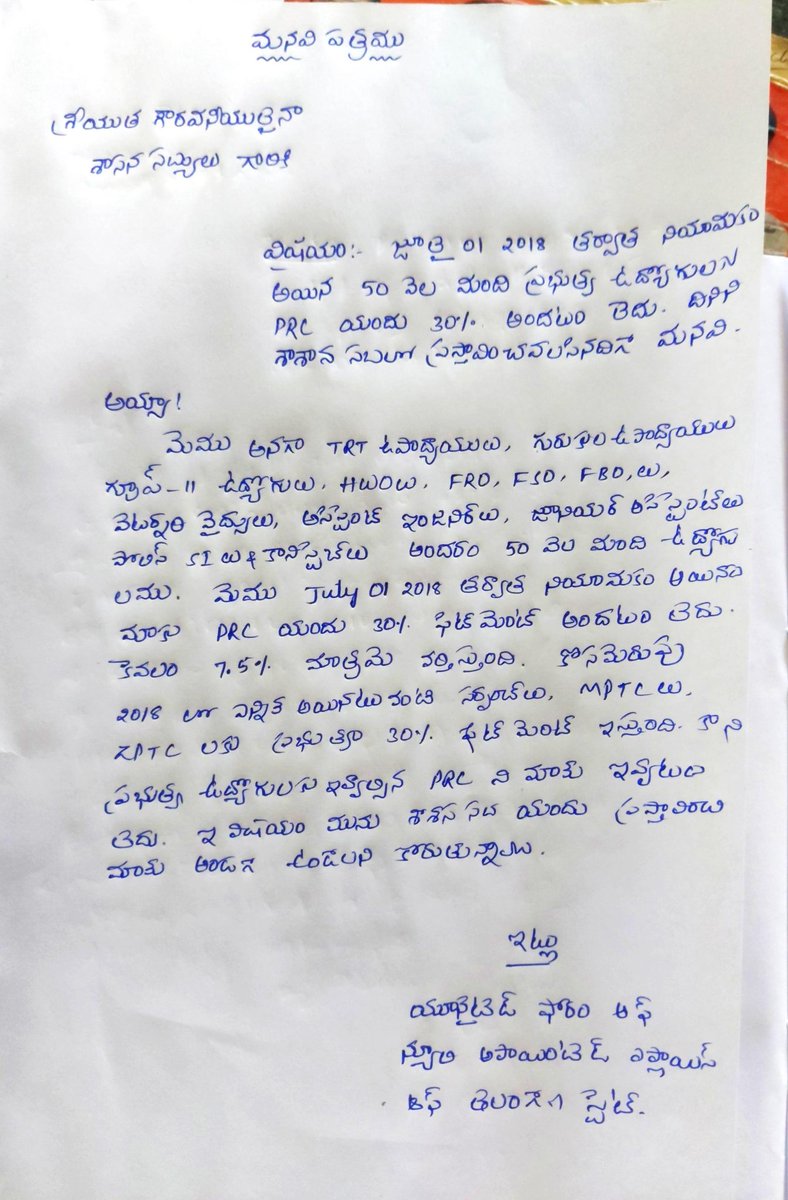 మనవి పత్రము
శ్రీయుత గౌరవనీయులైనా
శాసన సభ్యులు గారికి
విషయం:- జూలై 01 2018 తర్వాత నియామకం
అయిన 50 వెల మంది ప్రభుత్వ ఉద్యోగులకు
PRC యందు 30% అందటం లెదు. దినిని
శాశాన సబలో ప్రస్తావించవలసినదిగా మనవి.
అయ్యా!
మెము అనగా TRT ఉపాద్యాయులు, గురుకులం ఉపాద్యాయులు
గ్రూప్-11 ఉద్యోగులు, HWOలు, FRO, FSO, FBO,లు,
వెటర్నరి వైద్యులు, అసిస్టెంట్ ఇంజనిర్‌లు, జూనియర్ అసిస్టెంట్‌లు
పోలిస్ SI లు & కానిస్టెబుల్‌లు అందరం 50 వెల మంది ఉద్యోగు
లము. మెము July 01 2018 తర్వాత నియామకం అయినాం
మాకు PRC యందు 30% ఫిట్‌మెంట్ అందటం లెదు.
కెవలం 7.5% మాత్రమె వర్తిస్తుంది. కోసమెరుపు
2018 లో ఎన్నిక అయినటువంటి సర్పంచ్‌లు, MPTC లు,
ZPTC లకు ప్రభుత్వం 30% ఫిట్‌మెంట్ ఇస్తుంది. కాని
ప్రభుత్వ ఉద్యోగులకు ఇవ్వాల్సిన PRC ని మాకు ఇవ్వటం
లెదు. ఇ విషయం మిరు శాశన సబ యందు ప్రస్తావించి
మాకు అండగ ఉండలని కోరుతున్నాము.
ఇట్లు
యునైటెడ్ ఫోరం ఆఫ్
న్యూలి అపాయింటెడ్ ఎంప్లాయిస్
ఆఫ్ తెలంగాణ స్టెట్.